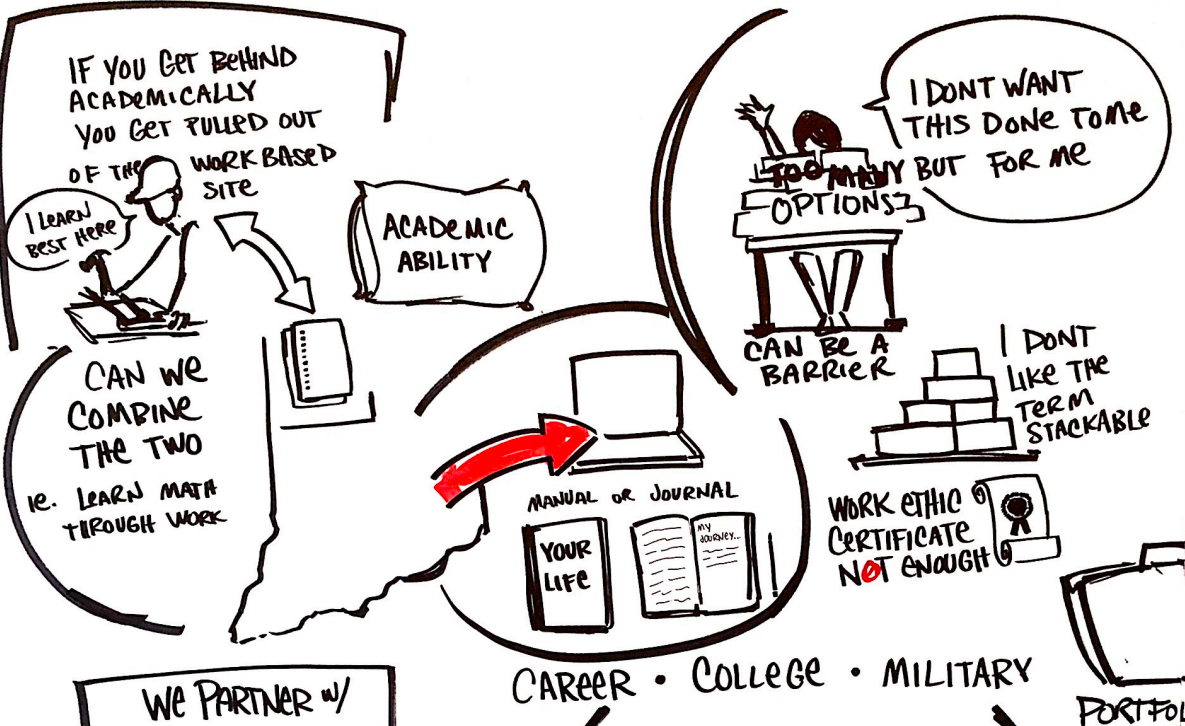 IF YOU GET BEHIND
ACADEMICALLY
YOU GET PULLED OUT
OF THE WORK BASED
SITE
I LEARN
BEST HERE
ACADEMIC
ABILITY
CAN WE
COMBINE
THE TWO
IE. LEARN MATH
THROUGH WORK
I DONT WANT
THIS DONE TO ME
BUT FOR ME
TOO MANY
OPTIONS
CAN BE A
BARRIER
I DONT
LIKE THE
TERM
STACKABLE
MANUAL OR JOURNAL
YOUR
LIFE
MY
JOURNEY...
WORK ETHIC
CERTIFICATE
NOT ENOUGH
CAREER • COLLEGE • MILITARY
WE PARTNER W/
PORTFOL